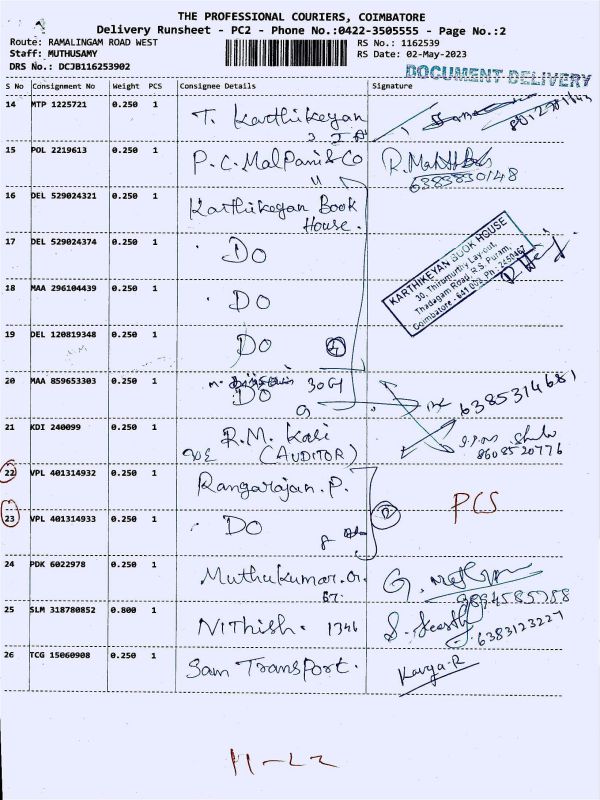 THE PROFESSIONAL COURIERS, COIMBATORE
Delivery Runsheet - PC2 - Phone No.:0422-3505555 - Page No.:2
Route: RAMALINGAM ROAD WEST
Staff: MUTHUSAMY
DRS No.: DCJB116253902
RS No.: 1162539
RS Date: 02-May-2023
DOCUMENT DELIVERY
S No Consignment No Weight PCS Consignee Details Signature
14 MTP 1225721 0.250 1 T. Karthikeyan
15 POL 2219613 0.250 1 P.C. Malpani & Co
6383830148
16 DEL 529024321 0.250 1 Karthikeyan Book
House.
17 DEL 529024374 0.250 1 Do
KARTHIKEYAN BOOK HOUSE
30, Thirumurthy Lay-out,
Thadagam Road, R.S. Puram,
Coimbatore - 641 002. Ph: 2450467
18 MAA 296104439 0.250 1 Do
19 DEL 120819348 0.250 1 Do
20 MAA 859653303 0.250 1 Do
6385314681
21 KDI 240099 0.250 1 R.M. Kasi
(AUDITOR)
8608520776
22 VPL 401314932 0.250 1 Rangarajan. P.
23 VPL 401314933 0.250 1 Do
PCS
24 PDK 6022978 0.250 1 Muthukumar. G.
67.
9894585758
25 SLM 318780852 0.800 1 Nithish. 1346
6383123227
26 TCG 15060908 0.250 1 Sam Transport.
Kavya-R
11-22